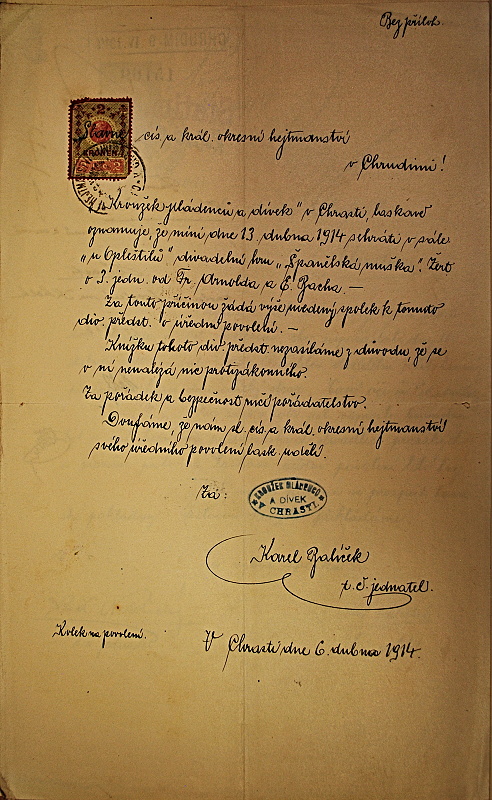 Bez příloh.
Slavné cís. a král. okresní hejtmanství
v Chrudimi!
2
KORUNY
"Kroužek mládenců a dívek" v Chrasti, laskavě
oznamuje, že míní dne 13. dubna 1914 sehráti v sále
"u Opletištilů" divadelní hru "Španělská muška". Žert
o 3 jedn. od Fr. Arnolda a E. Bacha. —
Za touto příčinou žádá výše uvedený spolek k tomuto
div. předst. o úřední povolení. —
Knížku tohoto div. předst. nezasíláme z důvodu, že se
v ní nenalézá nic protizákonného.
Za pořádek a bezpečnost ručí pořádatelstvo.
Doufáme, že nám sl. cís. a král. okresní hejtmanství
svého úředního povolení lask. udělí.
Za:
KROUŽEK MLÁDENCŮ
A DÍVEK
V CHRASTI.
Karel Balíček
t. č. jednatel.
Kolek na povolení.
V Chrasti dne 6. dubna 1914.